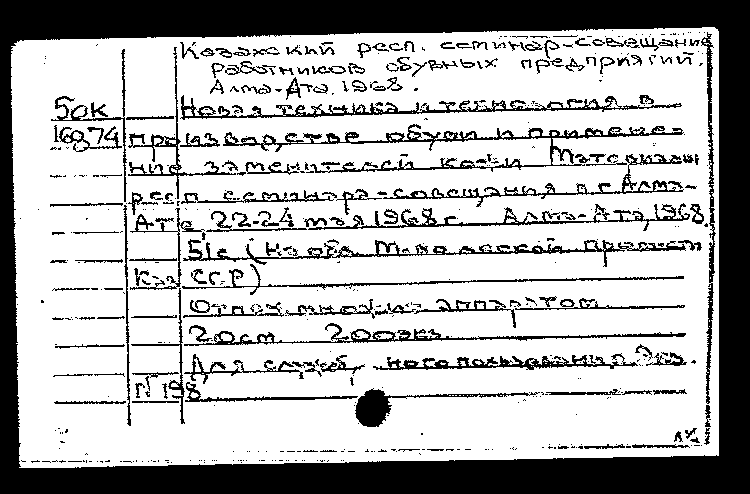 Казахский респ. семинар-совещание
работников обувных предприятий.
Алма-Ата, 1968.
50к Новая техника и технология в
16874 производстве обуви и примене-
ние заменителей кожи Материалы
респ. семинара-совещания в г. Алма-
Ате, 22-24 мая 1968 г. Алма-Ата, 1968.
51с (На обл. М-во легкой пром-сти
Каз ССР)
Отпеч. множит. аппаратом.
20см. 200экз.
Для служебного пользования. Экз.
N 198